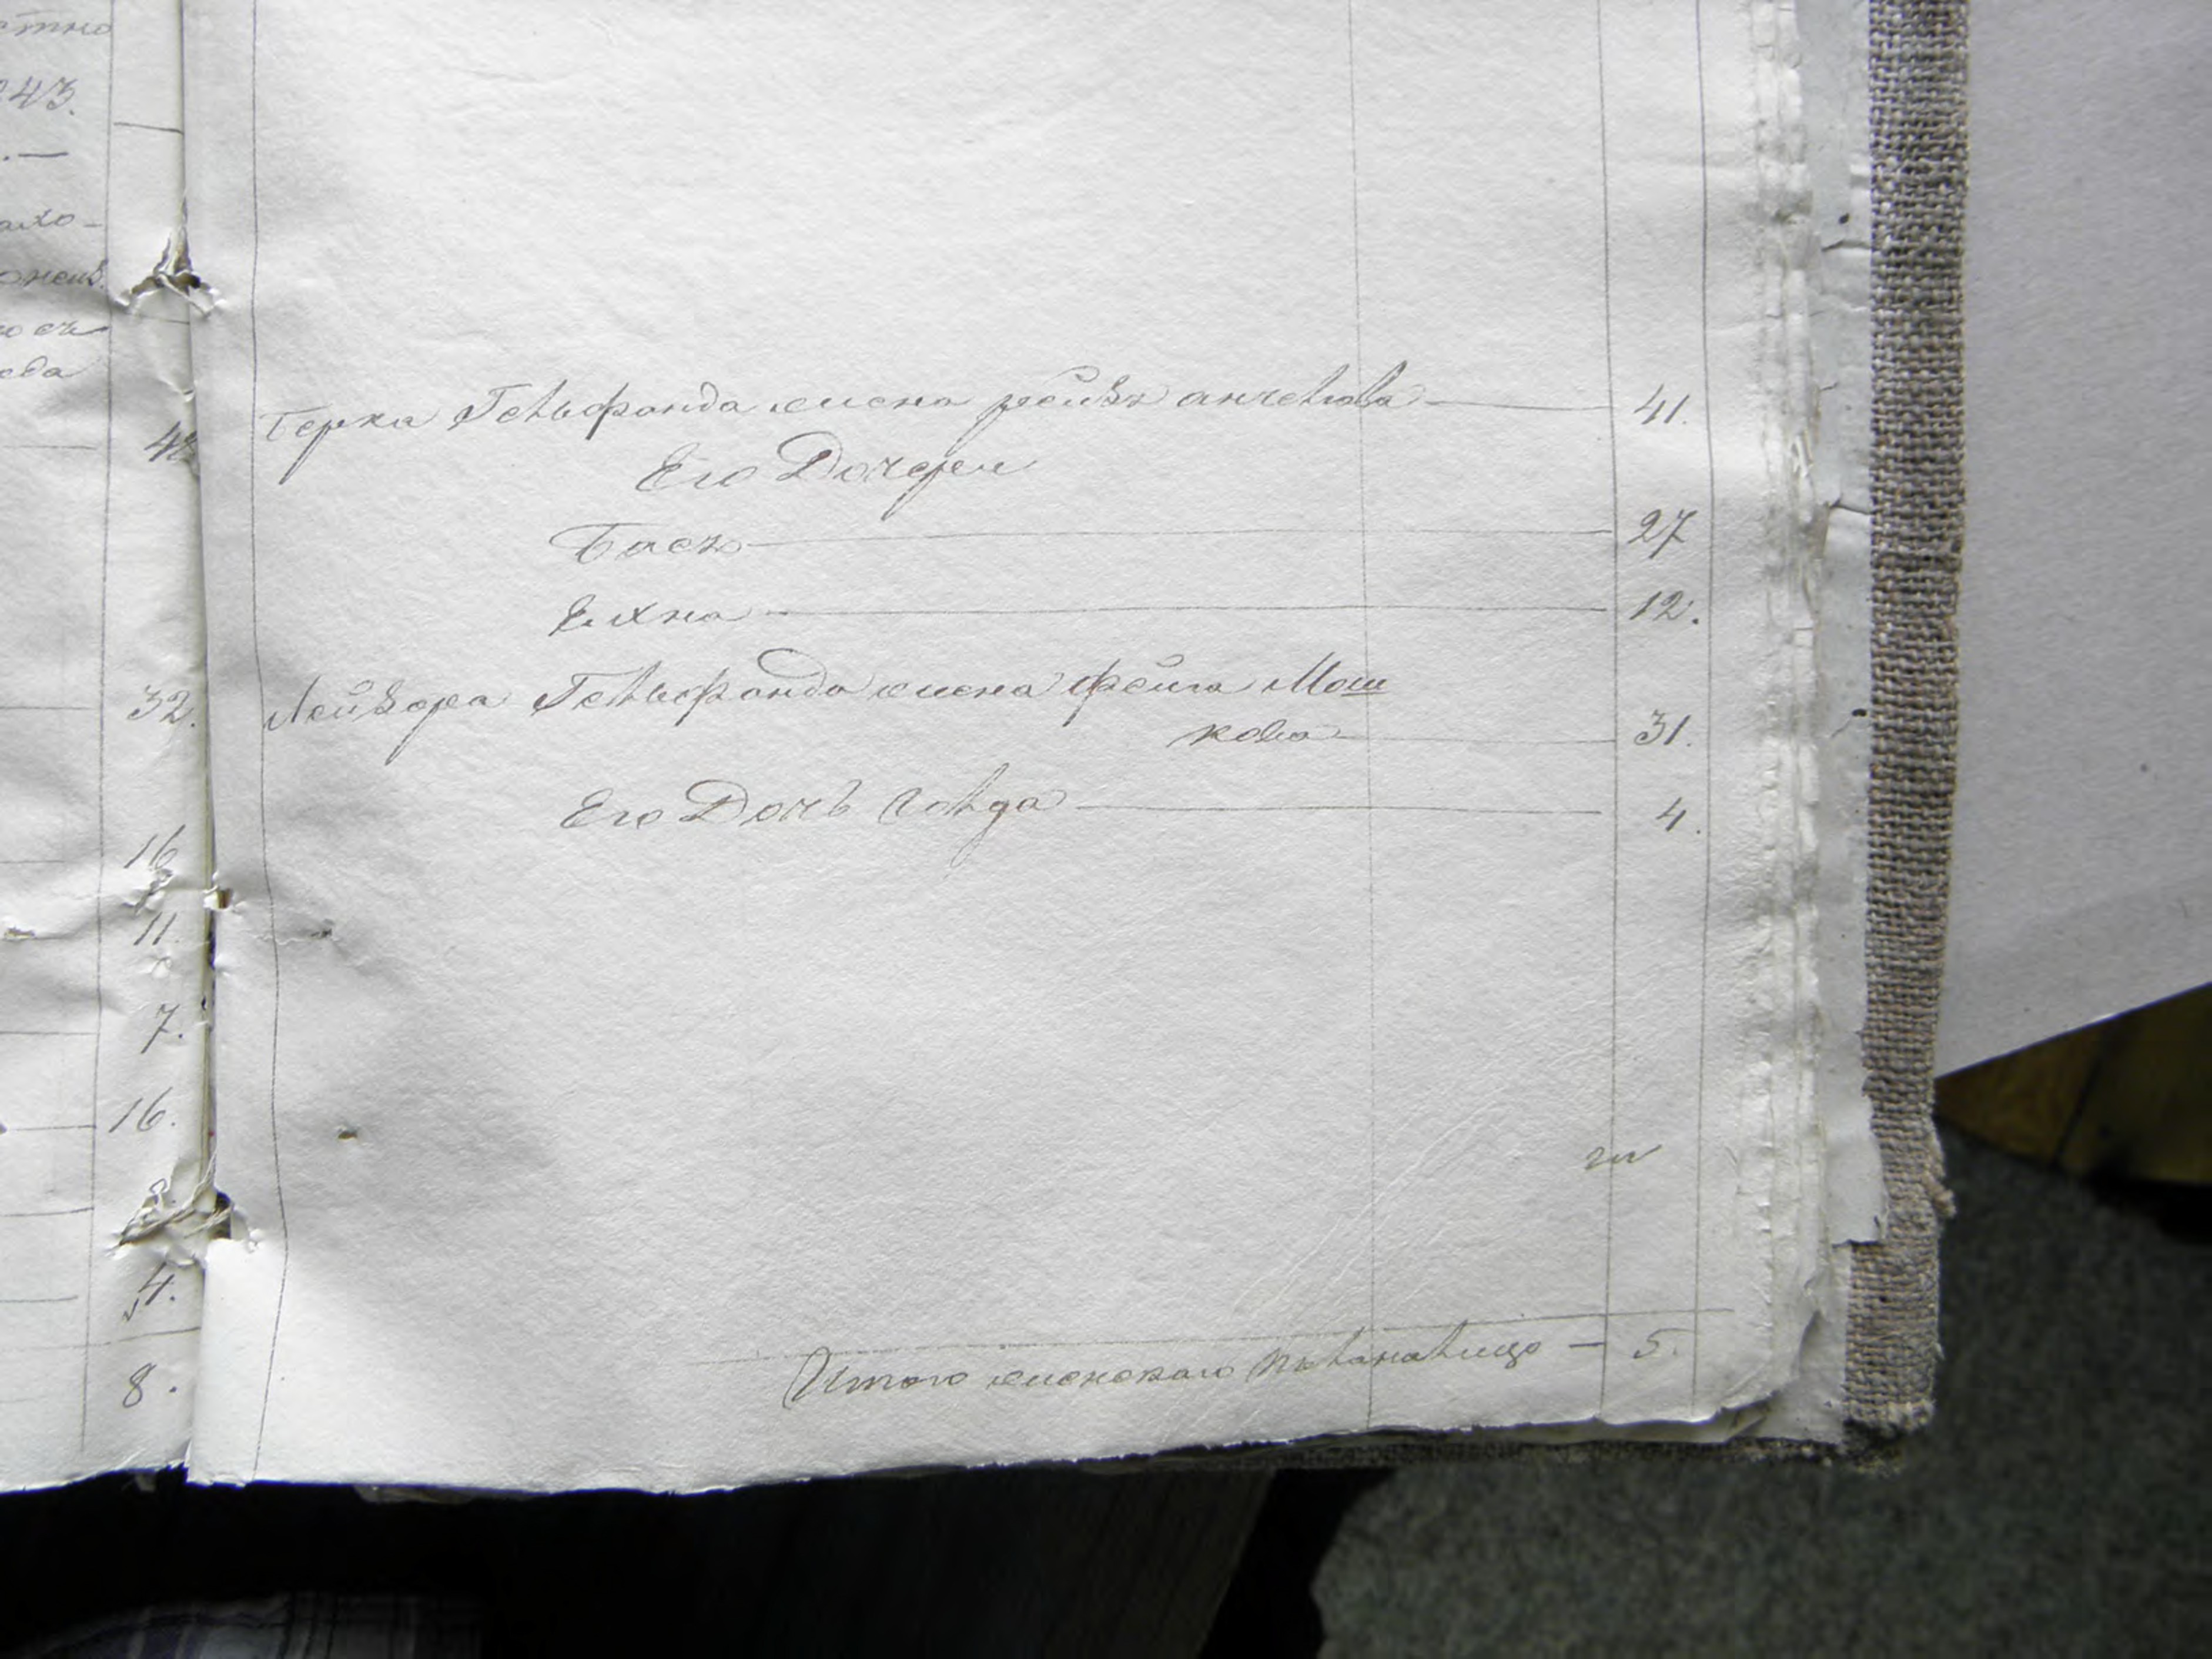 стно
243.
.—
ахо-
о съ
ева
42
32.
16
11.
7.
16.
4.
8.
Берка Гельфанда жена рейза анчелова — 41.
Его Дочери
Бася — 27
Елхна — 12.
Лейзора Гельфанда жена фейга Мош
кова — 31.
Его Дочь голда — 4.
Итого женскаго на лицо — 5.